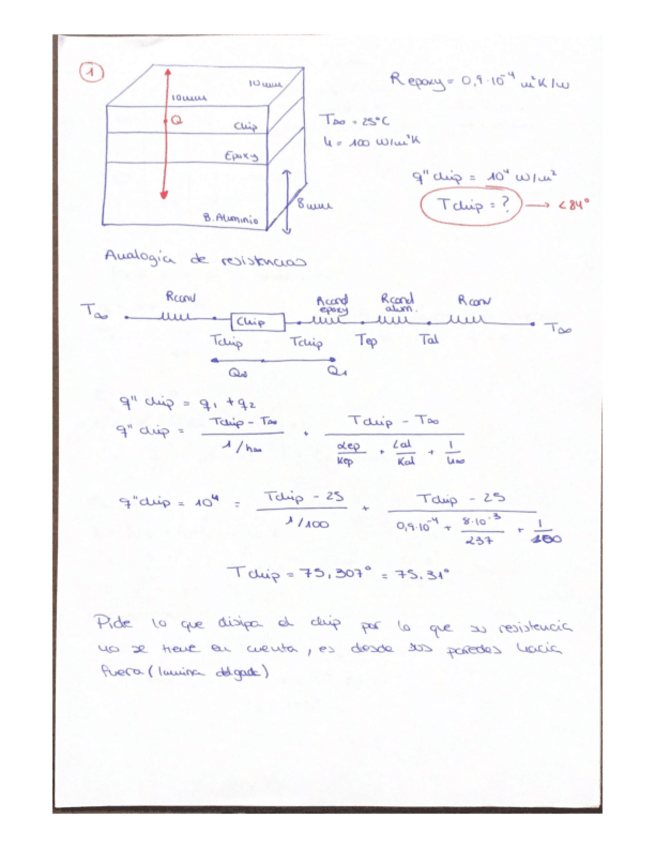 1
10mm
R epoxy = 0,9·10⁻⁴ m²K/w
10mm
Q
Chip
T∞ = 25°C
Epoxy
h = 100 W/m²K
q" chip = 10⁴ W/m²
8mm
T chip = ? → < 84°
B. Aluminio
Analogia de resistencias
T∞ Rconv Chip Rcond epoxy Rcond alum. Rconv T∞
Tchip Tchip Tep Tal
Q2 Q1
q" chip = q1 + q2
q" chip = Tchip - T∞ / 1/h∞ + Tchip - T∞ / Lep/Kep + Lal/Kal + 1/h∞
q" chip = 10⁴ = Tchip - 25 / 1/100 + Tchip - 25 / 0,9·10⁻⁴ + 8·10⁻³/237 + 1/100
T chip = 75,307° = 75,31°
Pide lo que disipa el chip por lo que su resistencia
no se tiene en cuenta, es desde sus paredes hacia
fuera (lamina delgada)